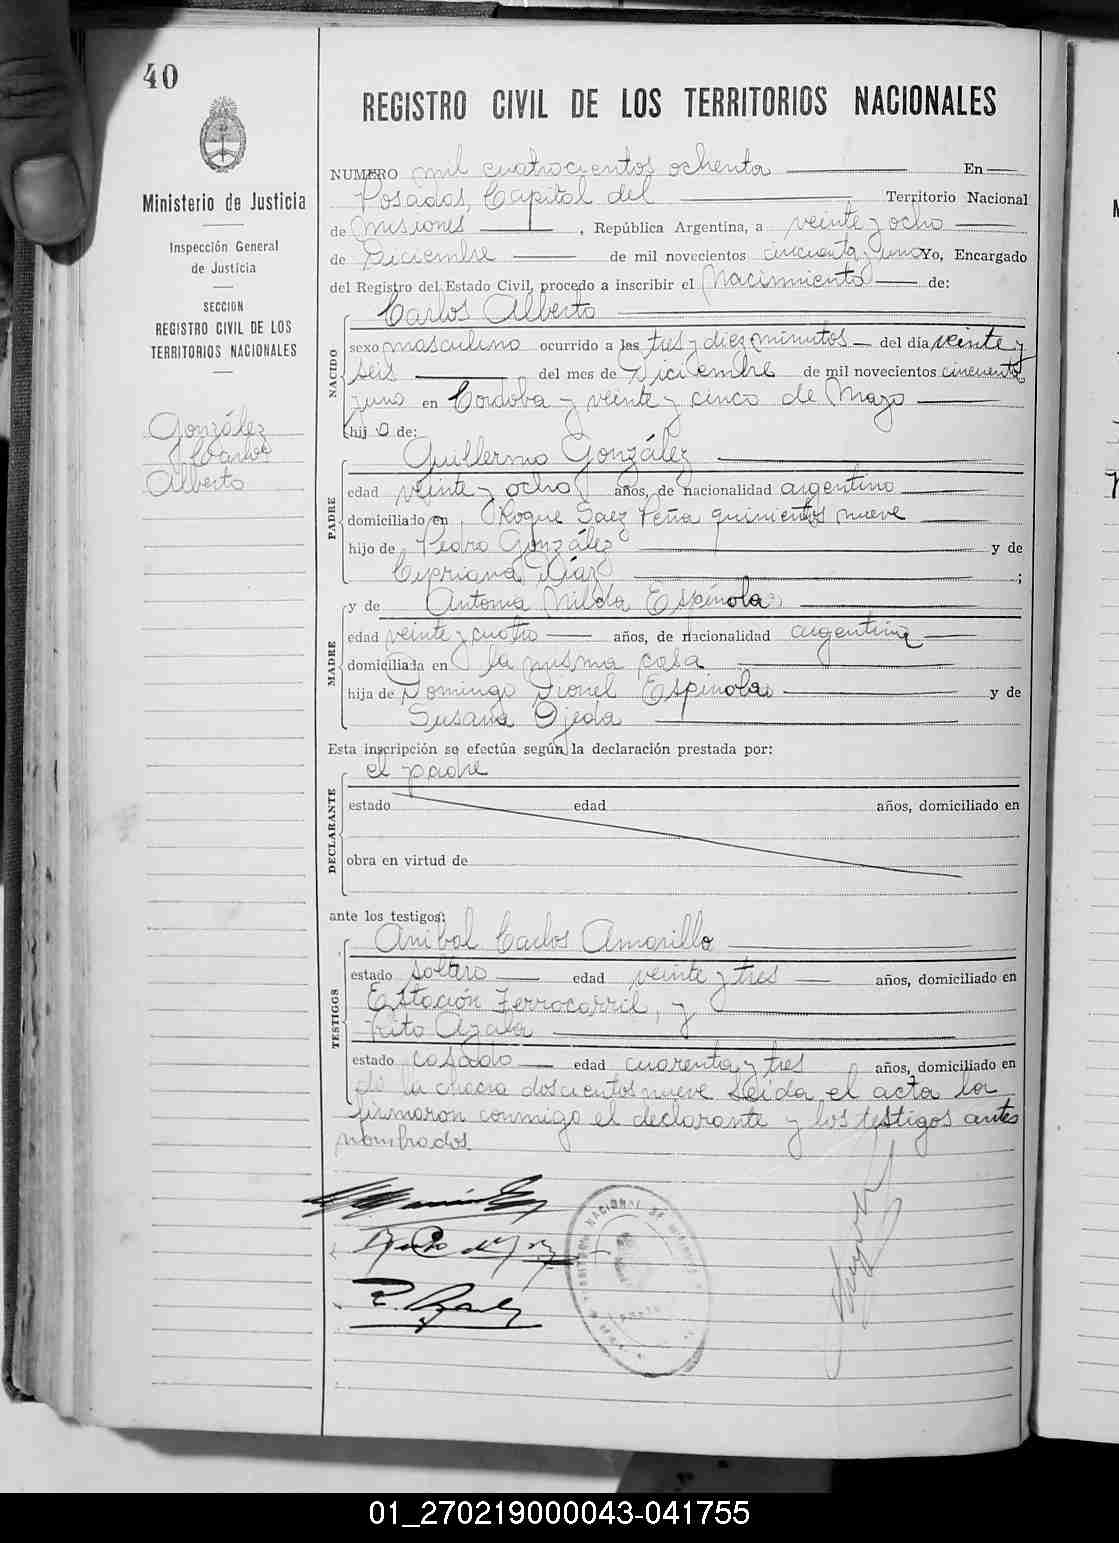 40
REGISTRO CIVIL DE LOS TERRITORIOS NACIONALES
Ministerio de Justicia
Inspección General
de Justicia
SECCION
REGISTRO CIVIL DE LOS
TERRITORIOS NACIONALES
González
Carlos
Alberto
NUMERO mil cuatrocientos ochenta En
Posadas, Capital del Territorio Nacional
de Misiones, República Argentina, a veinte y ocho
de Diciembre de mil novecientos cincuenta y uno Yo, Encargado
del Registro del Estado Civil, procedo a inscribir el Nacimiento de:
NACIDO
Carlos Alberto
sexo masculino ocurrido a las tres y diez minutos del día veinte y
seis del mes de Diciembre de mil novecientos cincuenta
y uno en Córdoba y veinte y cinco de Mayo
hijo de:
PADRE
Guillermo González
edad veinte y ocho años, de nacionalidad argentino
domiciliado en Roque Saez Peña quinientos nueve
hijo de Pedro González y de
Cipriana Díaz ;
MADRE
y de Antonia Nilda Espinola
edad veinte y cuatro años, de nacionalidad argentina
domiciliada en la misma casa
hija de Domingo Dionel Espinola y de
Susana Ojeda
Esta inscripción se efectúa según la declaración prestada por:
DECLARANTE
el padre
estado edad años, domiciliado en
obra en virtud de
ante los testigos:
TESTIGOS
Anibal Carlos Amarillo
estado soltero edad veinte y tres años, domiciliado en
Estación Ferrocarril, y
Rito Ayala
estado casado edad cuarenta y tres años, domiciliado en
de la chacra doscientos nueve Leída el acta la
firmaron conmigo el declarante y los testigos antes
nombrados.
R. Ayala
01_270219000043-041755